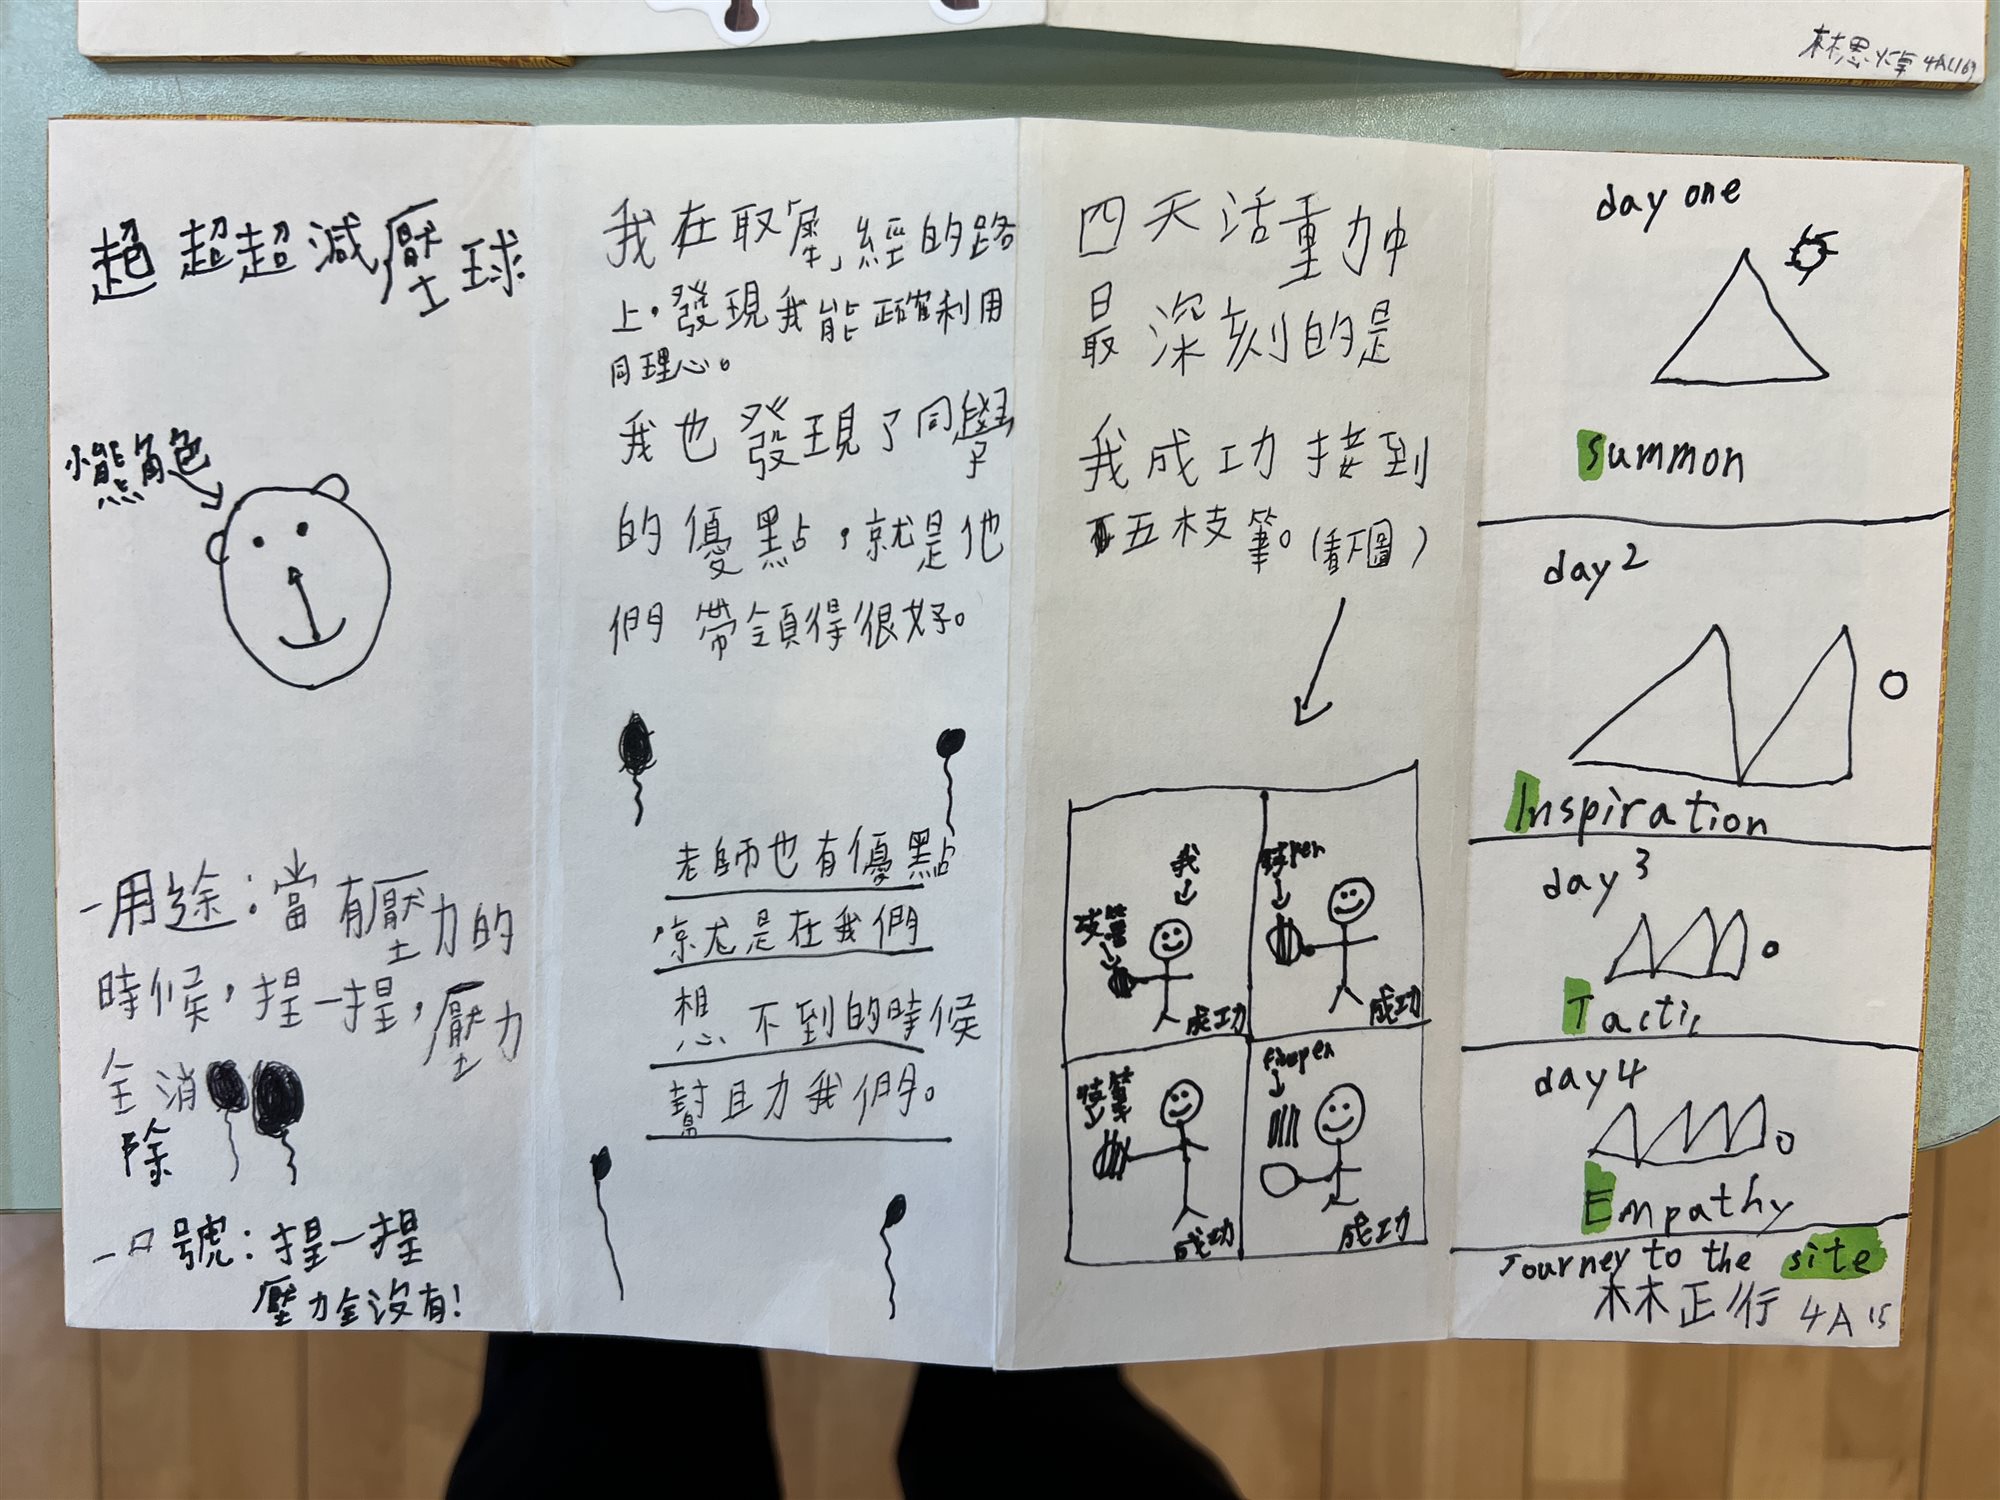 林思焯 4A(16)
超超超減壓球
小熊角色
一用途:當有壓力的
時候,捏一捏,壓力
全消
除
一口號:捏一捏
壓力全沒有!
我在取犀經的路
上,發現我能正確利用
同理心。
我也發現了同學
的優點,就是他
們帶領得很好。
老師也有優點
,就是在我們
想不到的時候
幫助我們。
四天活動中
最深刻的是
我成功接到
五枝筆。(看下圖)
我
成功
pen
成功
成功
成功
day one
Summon
day 2
Inspiration
day 3
Tactic
day 4
Empathy
Journey to the site
林正行 4A 15